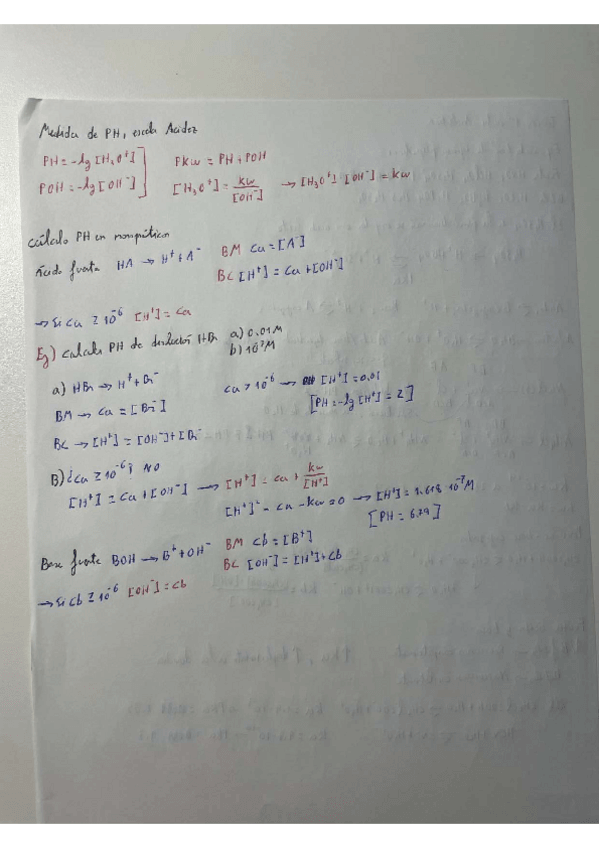 Medida de PH, escala Acidez
PH = -lg [H₃O⁺]   PKw = PH + POH
POH = -lg [OH⁻]   [H₃O⁺] = Kw/[OH⁻] → [H₃O⁺]·[OH⁻] = Kw
cálculo PH en monopróticos
Ácido fuerte HA → H⁺ + A⁻   BM Ca = [A⁻]
BC [H⁺] = Ca + [OH⁻]
→ Si Ca ≥ 10⁻⁶ [H⁺] = Ca
Ej) calcula PH de disolución HBr a) 0.01M
b) 10⁻⁷M
a) HBr → H⁺ + Br⁻   Ca > 10⁻⁶ → [H⁺] = 0.01
BM → Ca = [Br⁻]   [PH = -lg [H⁺] = 2]
BC → [H⁺] = [OH⁻] + [Br⁻
B) ¿Ca ≥ 10⁻⁶? NO
[H⁺] = Ca + [OH⁻] → [H⁺] = Ca + Kw/[H⁺]
[H⁺]² - Ca - Kw = 0 → [H⁺] = 1.618 10⁻⁷M
[PH = 6.79]
Base fuerte BOH → B⁺ + OH⁻   BM Cb = [B⁺]
BC [OH⁻] = [H⁺] + Cb
→ Si Cb ≥ 10⁻⁶ [OH⁻] = Cb